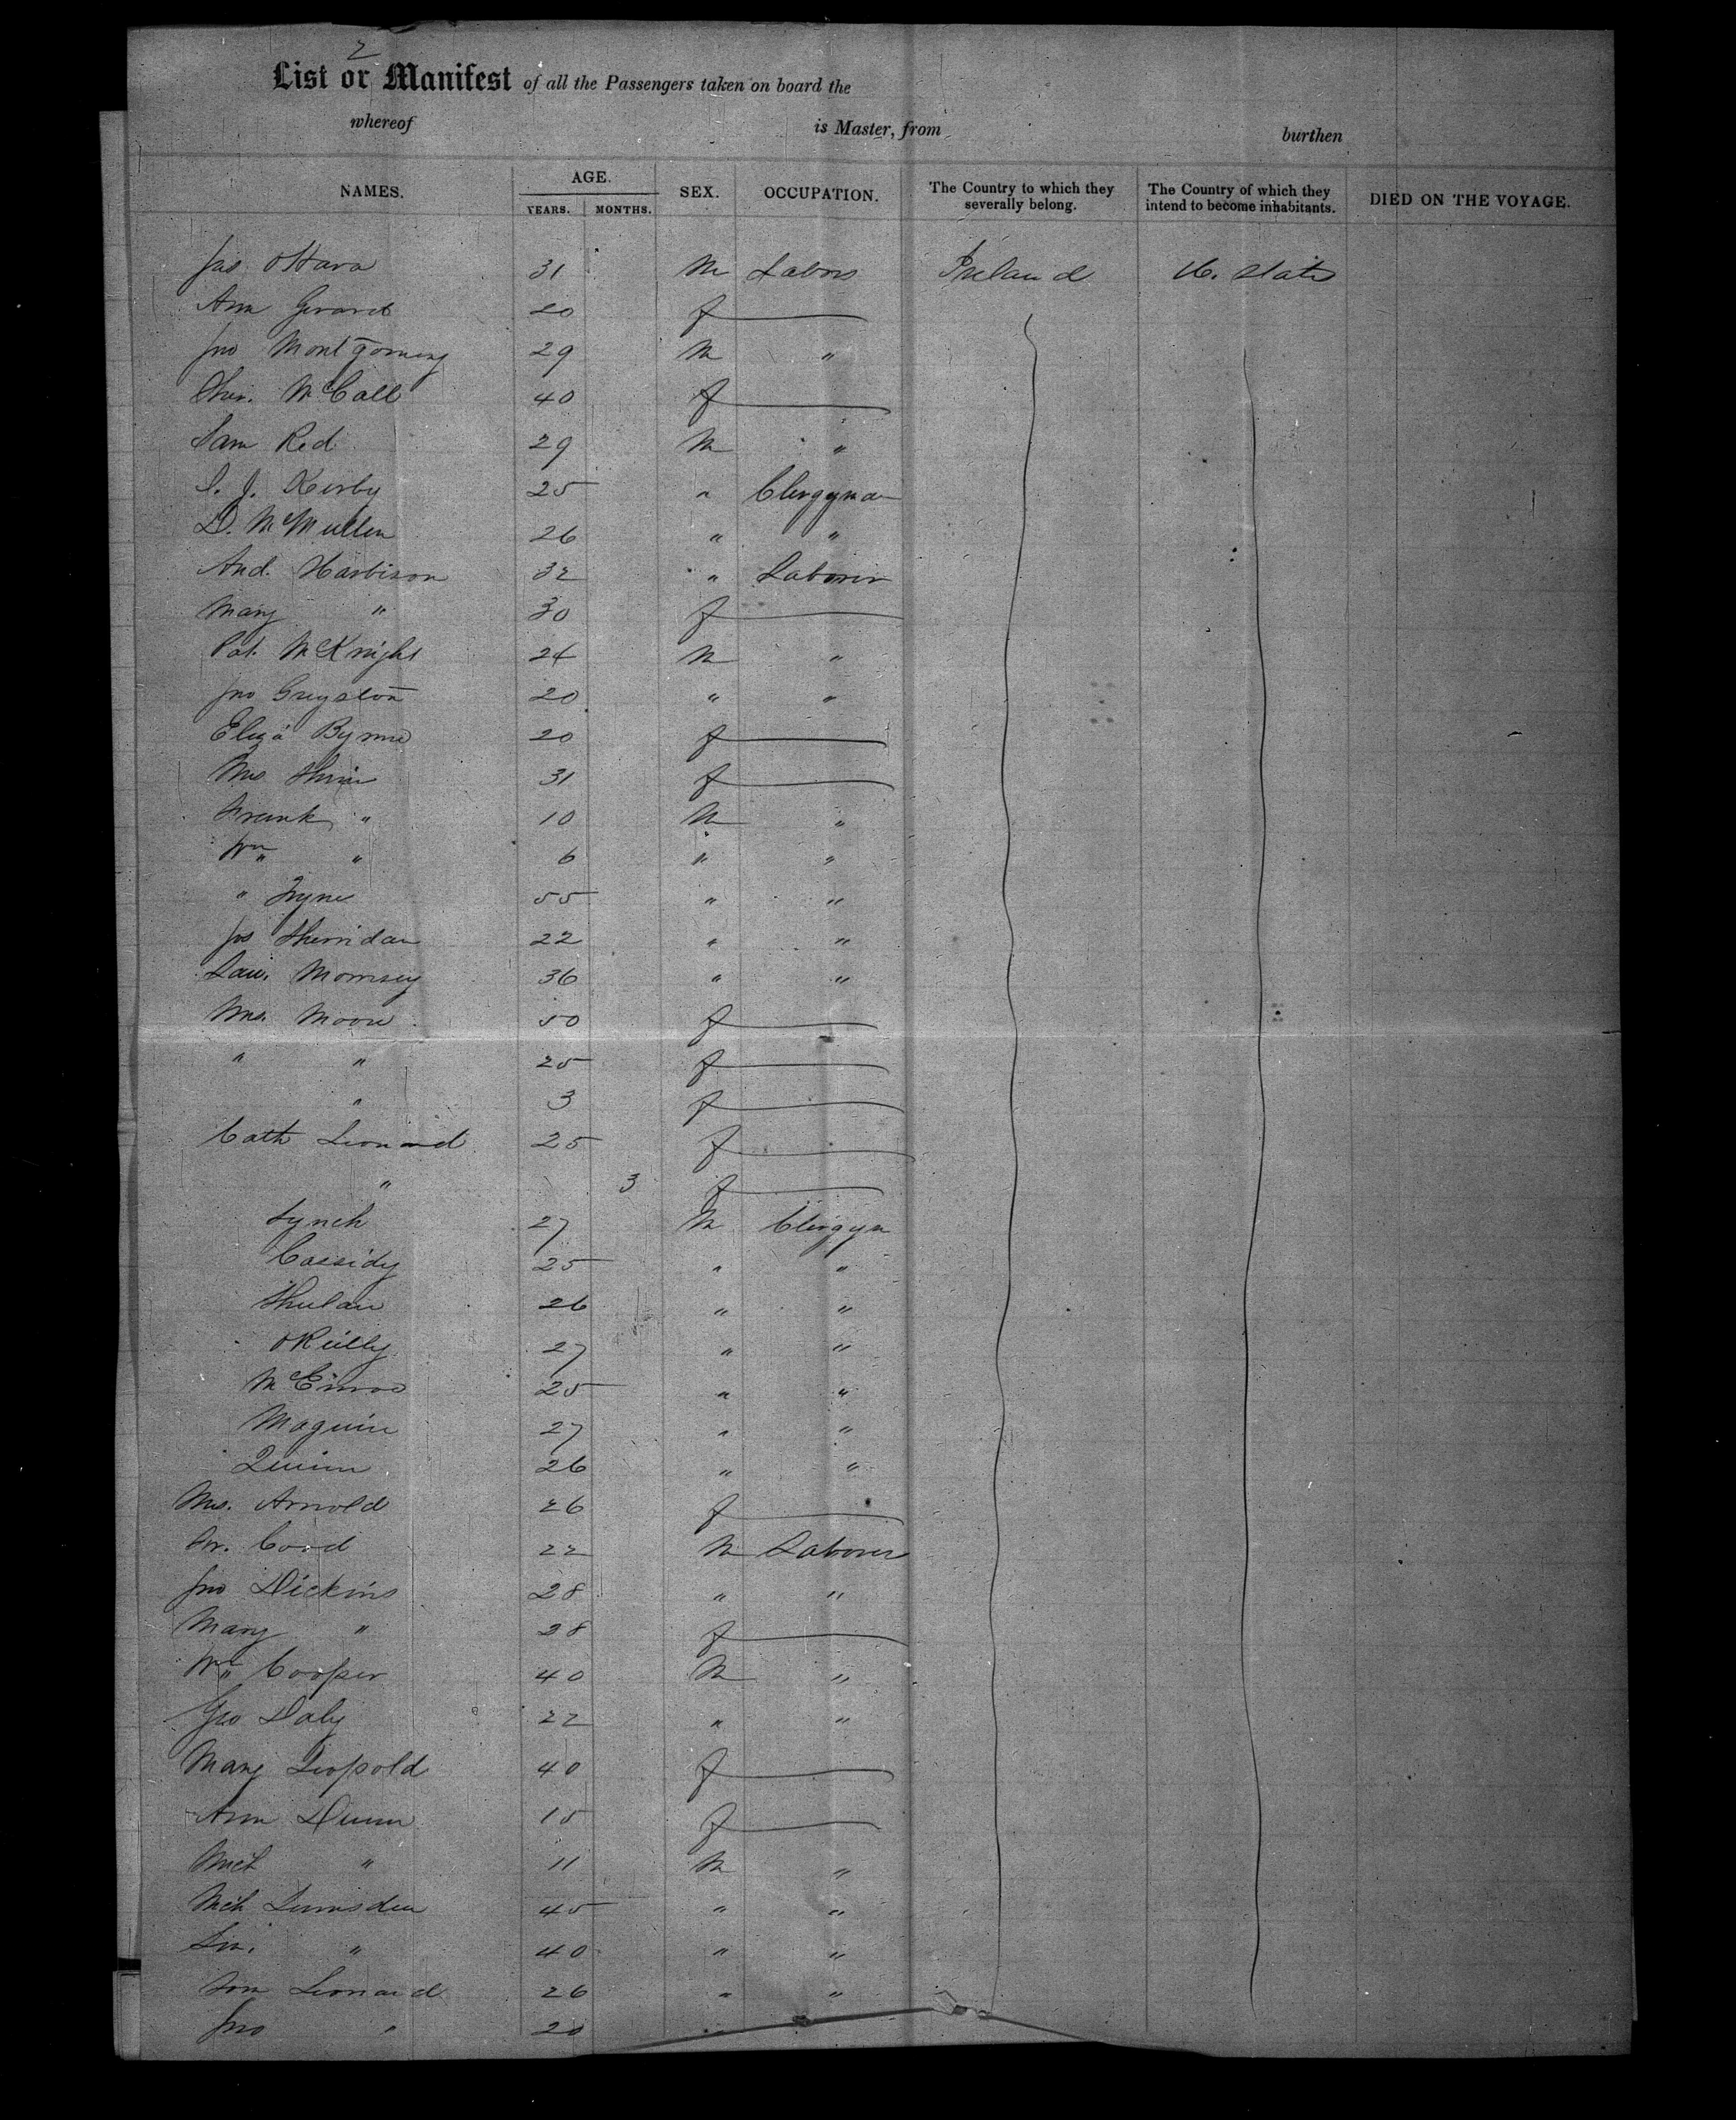 2
List or Manifest of all the Passengers taken on board the
whereof is Master, from burthen
NAMES. AGE. YEARS. MONTHS. SEX. OCCUPATION. The Country to which they severally belong. The Country of which they intend to become inhabitants. DIED ON THE VOYAGE.
Jas OHara 31 M Labors Ireland U. States
Ann Gerard 20 f
Jno Montgomery 29 M "
McCall 40 f
Sam Red 29 M "
J. Kirby 25 " Clergyman
D. McMullen 26 " "
And. Harbison 32 " Laborer
Mary " 30 f
Pat. McKnight 24 M "
Jno Greyston 20 " "
Eliza Byrne 20 f
Mrs 31 f
Frank " 10 M "
Wm " 6 " "
" 55 " "
Jos Sherridan 22 " "
Law. Morrisey 36 " "
Mrs. Moore 50 f
" " 25 f
" 3 f
Cath Leonard 25 f
" 3 f
Lynch 27 M Clergyn
Cassidy 25 " "
26 " "
OReilly 27 " "
McEnroe 25 " "
Maguire 27 " "
Quinn 26 " "
Mrs. Arnold 26 f
22 M Laborer
Jno Dickins 28 " "
Mary " 28 f
Wm Cooper 40 M "
Geo Daly 22 " "
Mary Leopold 40 f
Ann Dunn 15 f
Mich " 11 M "
Mich Lumsden 45 " "
" 40 " "
Leonard 26 " "
Jno " 20